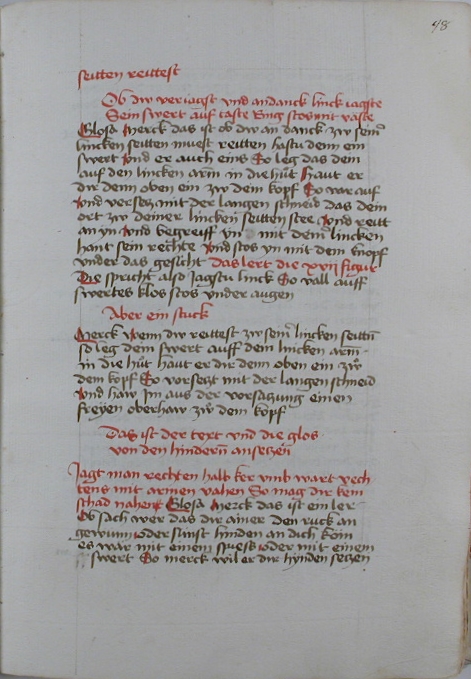 48
seitten reittest
Ob dw veriagst vnd an danck linck iagste
Sein swert auf taste Ring stos mit vaste
Glosa Merck das ist ob dw an danck zw seiner
lincken seitten muest reitten hastu denn ein
swert vnd er auch eins So leg das dein
auf den lincken arm in die hüt haut er
dir denn oben ein zw dem kopf So var auf
vnd versetz mit der langen schneid das dein
ort zw deiner lincken seitten stee vnd reitt
an yn vnd begreiff yn mit dem lincken
hant sein rechte vnd stos yn mit dem knopf
vnder das gesicht das lert die xvii figur
Die spricht also Jagstu linck So vall auff
swertes klos stos vnder augen
Aber ein stuck
Merck Wenn dw reittest zw seiner lincken seittn
so leg dein swert auff dein lincken arm
in die hüt haut er dir denn oben ein zw
dem kopf So vorsetzt mit der langen schneid
vnd haw Im aus der vorsatzung einen
freyen oberhaw zw dem kopf
Das ist der text vnd die glos
von den hindern ansetzen
Jagt man rechten halb ker vmb wart rech
tens mit armen vahen So mag dir kein
schad nahen Glosa Merck das ist ein ler
Ob sach wer das dir ainer den ruck an
gewunn oder sunst hinden an dich kom
es war mit einem spiesk oder mit einem
swert So merck wil er dir hynden setzen